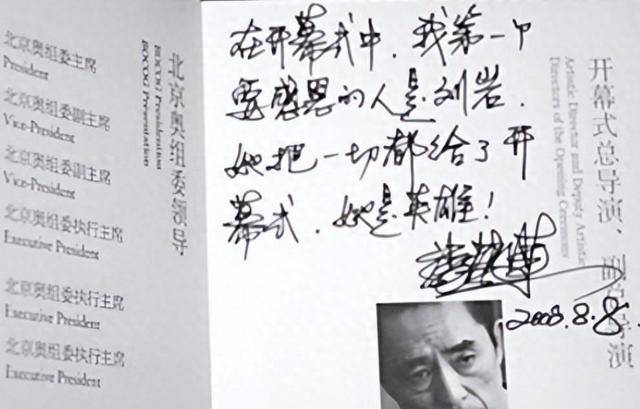 北京奥组委主席
President
北京奥组委副主席
Vice-President
北京奥组委副主席
Vice-President
北京奥组委执行主席
Executive President
北京奥组委执行主席
Executive President
北京奥组委执行主席
Executive President
北京奥组委领导
BOCOG Presentation
在开幕式中，我第一个
要感恩的人是刘岩．
她把一切都给了开
幕式．她是英雄！
2008.8.8.
开幕式总导演、副总导演
Artistic Director and Deputy Artistic
Directors of the Opening Ceremony